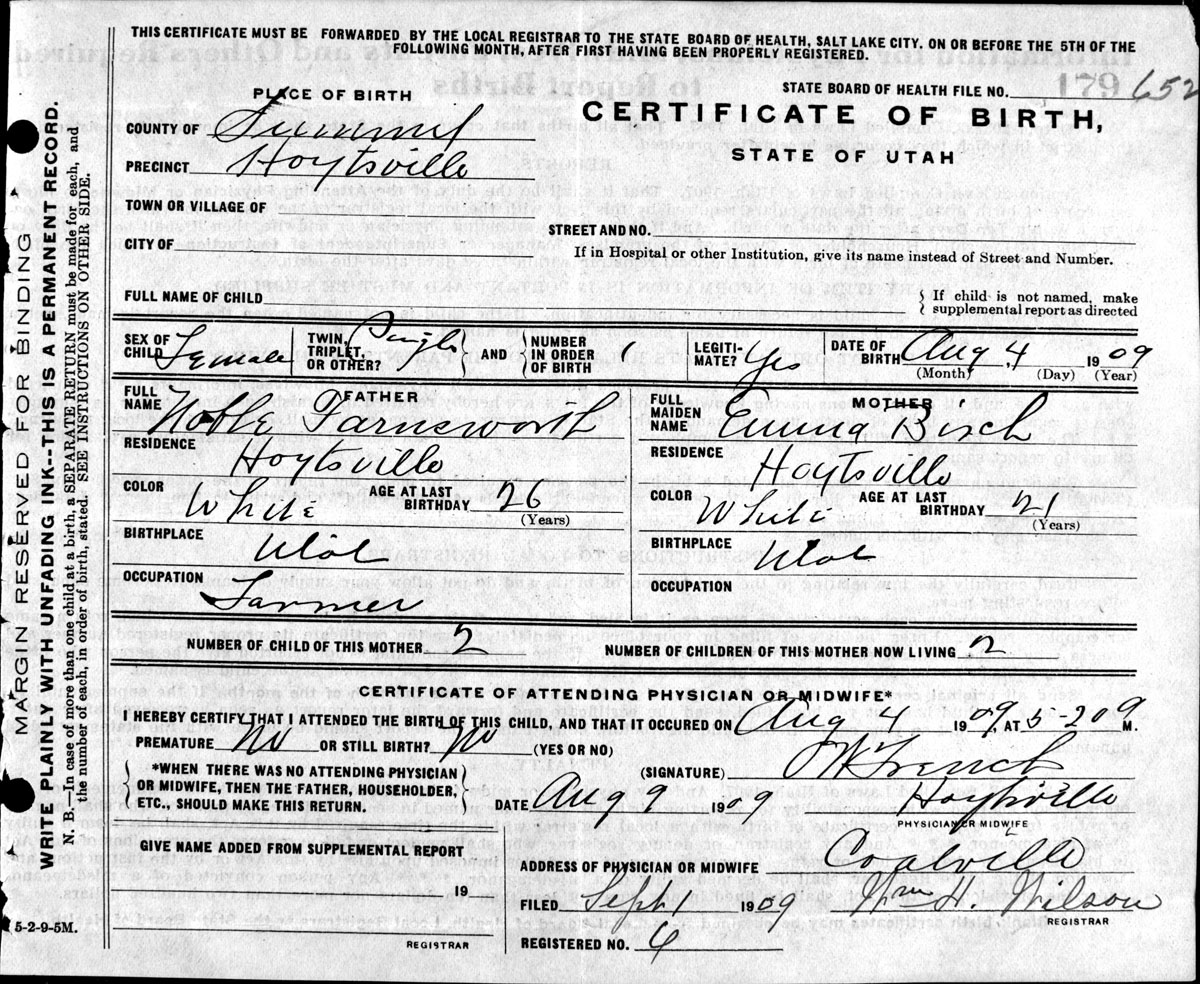 THIS CERTIFICATE MUST BE FORWARDED BY THE LOCAL REGISTRAR TO THE STATE BOARD OF HEALTH, SALT LAKE CITY. ON OR BEFORE THE 5TH OF THE
FOLLOWING MONTH, AFTER FIRST HAVING BEEN PROPERLY REGISTERED.
STATE BOARD OF HEALTH FILE NO. 179 652
PLACE OF BIRTH
CERTIFICATE OF BIRTH,
STATE OF UTAH
COUNTY OF Summit
PRECINCT Hoytsville
TOWN OR VILLAGE OF
STREET AND NO.
CITY OF
If in Hospital or other Institution, give its name instead of Street and Number.
FULL NAME OF CHILD
If child is not named, make
supplemental report as directed
SEX OF CHILD Female
TWIN, TRIPLET, OR OTHER? Single
AND NUMBER IN ORDER OF BIRTH 1
LEGITIMATE? Yes
DATE OF BIRTH Aug 4, 1909
(Month) (Day) (Year)
FATHER
FULL NAME Noble Farnsworth
RESIDENCE Hoytsville
COLOR White AGE AT LAST BIRTHDAY 26
(Years)
BIRTHPLACE Utah
OCCUPATION Farmer
MOTHER
FULL MAIDEN NAME Emma Birch
RESIDENCE Hoytsville
COLOR White AGE AT LAST BIRTHDAY 21
(Years)
BIRTHPLACE Utah
OCCUPATION
NUMBER OF CHILD OF THIS MOTHER 2 NUMBER OF CHILDREN OF THIS MOTHER NOW LIVING 2
CERTIFICATE OF ATTENDING PHYSICIAN OR MIDWIFE*
I HEREBY CERTIFY THAT I ATTENDED THE BIRTH OF THIS CHILD, AND THAT IT OCCURED ON Aug 4 1909, AT 5-20 M.
PREMATURE No OR STILL BIRTH? No (YES OR NO)
*WHEN THERE WAS NO ATTENDING PHYSICIAN
OR MIDWIFE, THEN THE FATHER, HOUSEHOLDER,
ETC., SHOULD MAKE THIS RETURN.
(SIGNATURE) French
DATE Aug 9 1909 Hoytsville
PHYSICIAN OR MIDWIFE
GIVE NAME ADDED FROM SUPPLEMENTAL REPORT
19
REGISTRAR
ADDRESS OF PHYSICIAN OR MIDWIFE Coalville
FILED Sept 1 1909 Wm H. Wilson
REGISTERED NO. 4
REGISTRAR
5-2-9-5M.
MARGIN RESERVED FOR BINDING
WRITE PLAINLY WITH UNFADING INK--THIS IS A PERMANENT RECORD.
N. B.—In case of more than one child at a birth, SEPARATE RETURN must be made for each, and
the number of each, in order of birth, stated. SEE INSTRUCTIONS ON OTHER SIDE.